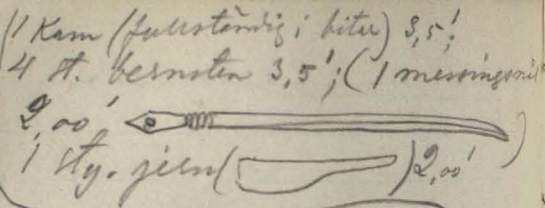 (1 Kam (fullständig i bitar) 3,5';
4 st. bernsten 3,5'; (1 messingsnål
2,00' )
1 sty. jern ( ) 2,00'